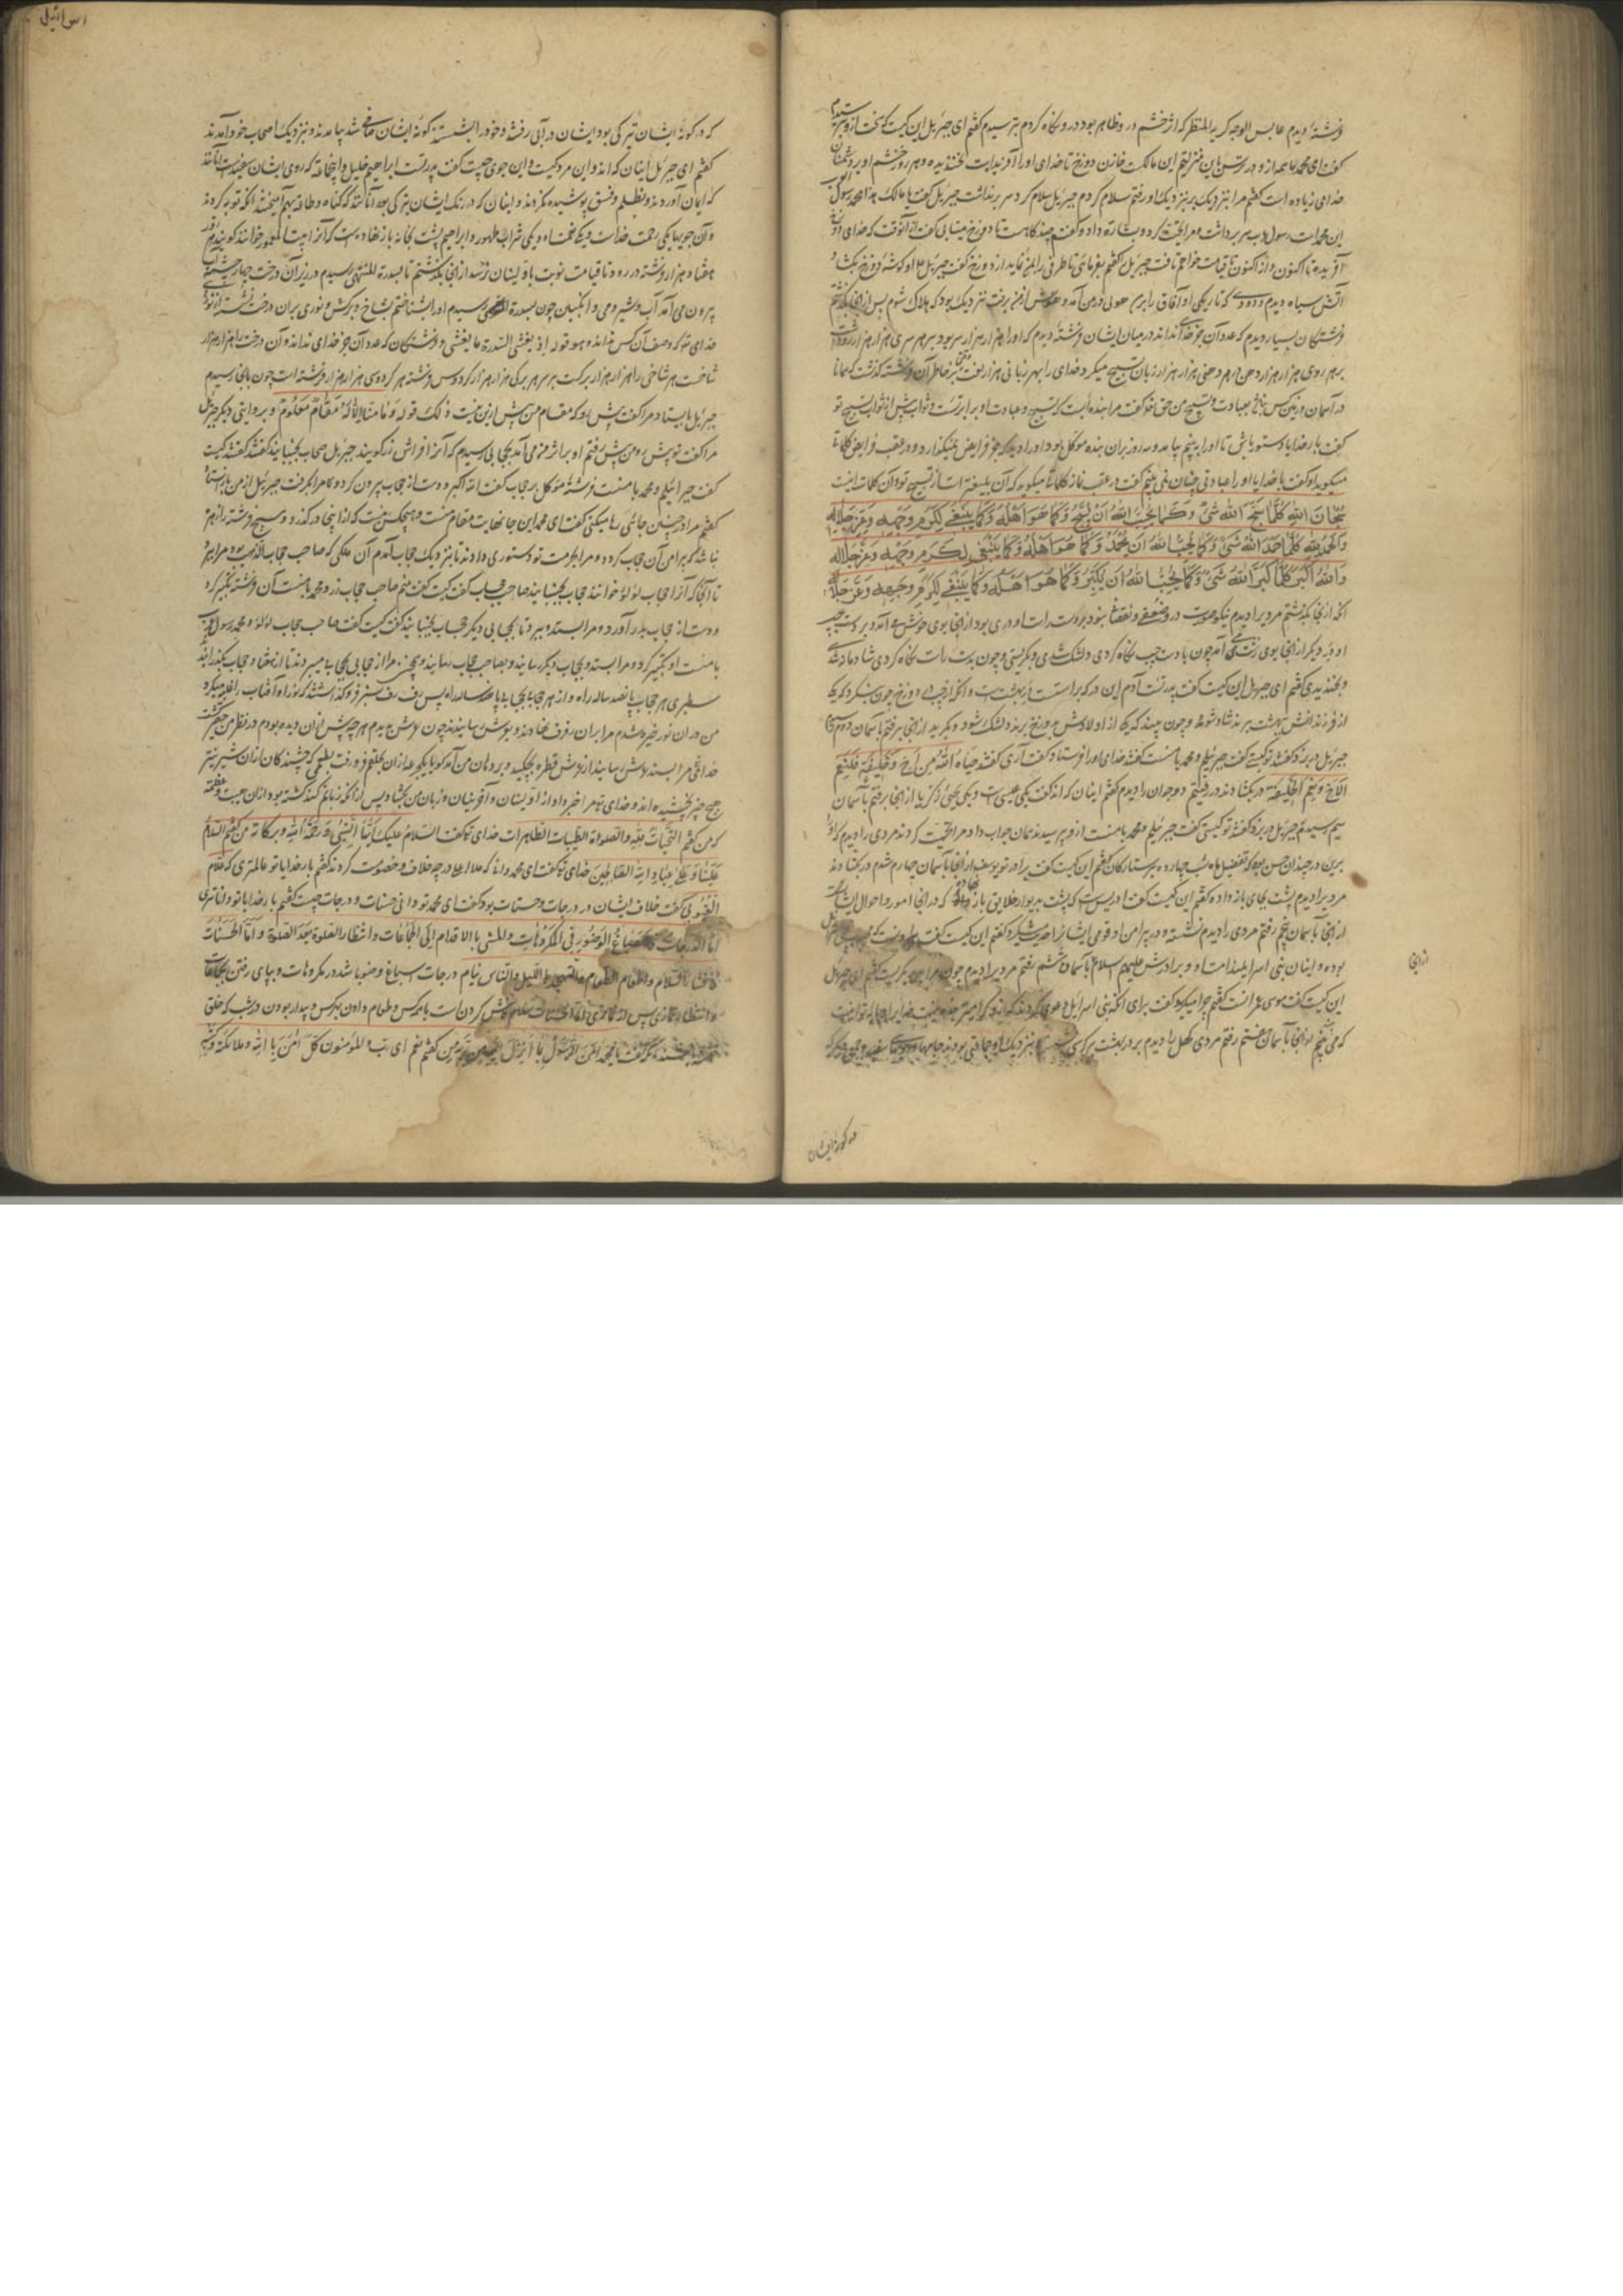 فرشتهٔ دیدم عابس الوجه کریه المنظر که اثر خشم در وی ظاهر بود در و نگاه کردم بترسیدم گفتم ای جبرئیل این کیست که سخت ازو بترسیدم
گفت ای محمد ما همه ازو در ترس باین منزلتیم این مالکست خازن دوزخ تا خدای او را آفریدست نخندیده و هر روز خشم او بر دشمنان
خدای زیاده است گفتم مرا بنزدیک بر بنزدیک او رفتم سلام کردم جبرئیل سلام کرد سر برنداشت جبرئیل گفت یا مالک هذا محمد رسول
این محمد است رسول رب سر برداشت و مرا تحیت کرد و بشارت داد و گفتم چند گاهست تا دوزخ میتابی گفت از آنوقت که خدای
آفریده تا اکنون و از اکنون تا قیامت خواهم تافت جبرئیل را گفتم بفرمای تا طرفی را بمن نماید از دوزخ گفت جبرئیل او گوشهٔ دوزخ بگشاد
آتش سیاه دیدم و دودی که تاریکی او آفاق را ببرد هولی در من آمد و هوش از من برفت نزدیک بود که هلاک شوم پس از آنجا بگذشتم
فرشتگان بسیار دیدم که عدد آن جز خدا نداند در میان ایشان فرشتهٔ دیدم که او را هزار هزار سر بود بر هر سری هزار هزار روی
بر هر روی هزار هزار دهن در هر دهنی هزار هزار زبان تسبیح میکرد خدای را بهر زبانی هزار لغت بر خاطر آن فرشته گذشت که همانا
در آسمان و زمین کس نباشد بعبادت و تسبیح من حق تعالی گفت مرا بنده‌ایست که تسبیح و عبادت او برابر تست و ثواب بیش از ثواب تسبیح تو
گفت بار خدایا دستور باش تا او را ببینم بیامد و سه روز بر آن بنده موکل بود او را دید که جز فرایض نمیگذارد و در عقب فرایض کلمات
میگوید او گفت بار خدایا او را عبادتی چنان نمی بینم گفت در عقب نماز کلماتی میگوید که آن بلیغتر است از تسبیح تو و آن کلمات اینست
سُبْحَانَ اللهِ كُلَّمَا سَبَّحَ اللهَ شَیْءٌ وَكَمَا یُحِبُّ اللهُ أَنْ یُسَبَّحَ وَكَمَا هُوَ أَهْلُهُ وَكَمَا یَنْبَغِی لِكَرَمِ وَجْهِهِ وَعِزِّ جَلَالِهِ
وَالْحَمْدُ للهِ كُلَّمَا حَمِدَ اللهَ شَیْءٌ وَكَمَا یُحِبُّ اللهُ أَنْ یُحْمَدَ وَكَمَا هُوَ أَهْلُهُ وَكَمَا یَنْبَغِی لِكَرَمِ وَجْهِهِ وَعِزِّ جَلَالِهِ
وَاللهُ أَكْبَرُ كُلَّمَا كَبَّرَ اللهَ شَیْءٌ وَكَمَا یُحِبُّ اللهُ أَنْ یُكَبَّرَ وَكَمَا هُوَ أَهْلُهُ وَكَمَا یَنْبَغِی لِكَرَمِ وَجْهِهِ وَعِزِّ جَلَالِهِ
آنکه از آنجا بگذشتم مردیرا دیدم نیکو صورت درو ضعفی و نقصانی نبود بر دست راست او دری بود از آنجا بوی خوش می آمد و بر دست چپ
او دری دیگر از آنجا بوی زشت می آمد چون بادست چپ نگاه کردی دلتنگ شدی و بگریستی و چون بدست راست نگاه کردی شادمانه شدی
و بخندیدی گفتم ای جبرئیل این کیست گفت پدر تست آدم این در که بر راستست در بهشت است و آنکه از چپ در دوزخ چون بنگرد که یکی
از فرزندانش به بهشت برند شاد شود و چون بیند که یکی از اولادش بدوزخ برند دلتنگ شود و بگرید از آنجا برفتم با آسمان دوم
جبرئیل در بزد گفتند تو کیستی گفت جبرئیلم و محمد با منست گفتند خدای او را فرستاد گفت آری گفتند حَیَّاهُ اللهُ مِنْ أَخٍ وَخَلِیفَةٍ فَنِعْمَ
الْأَخُ وَنِعْمَ الْخَلِیفَةُ در بگشادند در رفتیم دو جوان را دیدم گفتم اینان که اند گفت یکی عیسی است و یکی یحیی زکریا از آنجا برفتم با آسمان
سیم رسیدم جبرئیل در بزد گفتند تو کیستی گفت جبرئیلم و محمد با منست ازو پرسیدند همان جواب داد مرا تحیت کردند مردی را دیدم که او را
برین در چندان حسن بود که تفضیل ماه شب چهارده بر ستارگان گفتم این کیست گفت برادر تو یوسف از آنجا با آسمان چهارم شدم در بگشادند
مردیرا دیدم پشت بجای باز داده گفتم این کیست گفت ادریس است که پشت بدیوار خلایق باز نهاده که در آنجا امور و احوال ایشان
از آنجا با آسمان پنجم رفتم مردی را دیدم نشسته و در پیرامن او قومی ایشانرا گفتم این کیست گفت هارونست
بوده و اینان بنی اسرائیلند و برادرش علیهم السلام با آسمان ششم رفتم مردیرا دیدم چون مرا دید بگریست گفتم ای جبرئیل
این کیست گفت موسی عمرانست گفتم چرا میگرید گفت برای آنکه بنی اسرائیل دعوی کردند
که من از آنجا با آسمان هفتم رفتم مردی کهل را دیدم بر در بهشت بر کرسی نشسته و بنزدیک او جماعتی بودند
از آنجا
در گونهٔ ایشان
اسرائیلی
که در گونهٔ ایشان تیرگی بود ایشان در آبی رفتند و خود را بشستند گونهٔ ایشان صافی شد بیامدند و بنزدیک اصحاب خود آمدند
گفتم ای جبرئیل اینان که اند و این مرد کیست و این جوی چیست گفت پدر تست ابراهیم خلیل و این جماعت که روی ایشان سفیدست آنانند
که ایمان آوردند و بظلم و فسق پوشیده نکردند و اینان که در رنگ ایشان تیرگی بود آنانند که گناه و طاعت بهم آمیختند آنکه توبه کردند
و آن جویها یکی رحمت خداست و یکی نعمت او و یکی شراب طهور و ابراهیم پشت بخانه باز نهاده است که آنرا بیت المعمور خوانند
هفتاد هزار فرشته در رود تا قیامت نوبت با اولینان نرسد از آنجا بگذشتم تا بسدرة المنتهی رسیدم در زیر آن درخت چهار چشمه
بیرون می آمد آب و شیر و می و انگبین چون بسدرة المنتهی رسیدم او را بشناختم بشاخ و برگش و نوری بر آن درخت نشسته از نور
خدای تعالی که وصف آن کس نداند و هو قوله اذ یغشی السدرة ما یغشی و فرشتگان که عدد آن جز خدای نداند و آن درخت را هزار هزار
شاخست هر شاخی را هزار هزار برگست بر سر هر برگی هزار هزار کردوس فرشته هر کردوسی هزار هزار فرشته است چون بآنجا رسیدم
جبرئیل بایستاد مرا گفت پیش رو که مقام من پیش ازین نیست و ذلک قوله وَمَا مِنَّا إِلَّا لَهُ مَقَامٌ مَعْلُومٌ و بروایتی دیگر جبرئیل
مرا گفت تو پیش رو من پیش رفتم او بر اثر من می آمد بحجابی رسیدم که آنرا فراش زر گویند جبرئیل حجاب بجنبانید گفتند کیست
گفت جبرائیلم و محمد با منست فرشتهٔ موکل بر حجاب گفت الله اکبر و دست از حجاب بیرون کرد و مرا برگرفت جبرئیل از من باز ایستاد
گفتم مرا در چنین جائی رها میکنی گفت ای محمد این جا نهایت مقام منست و هیچکس نیست که از اینجا درگذرد و هیچ فرشته را زهره
نباشد که پیرامن آن حجاب گردد و مرا بحرمت تو دستوری دادند تا بنزدیک حجاب آمدم آن ملکی که صاحب حجاب الذهب بود مرا ببرد
تا آنجا که آنرا حجاب لؤلؤ خوانند حجاب بجنبانید صاحب حجاب گفت کیست گفت منم صاحب حجاب زر و محمد با منست آن فرشته تکبیر کرد
و دست از حجاب بدر آورد و مرا بستد و ببرد تا بحجابی دیگر حجاب بجنبانید گفت کیست گفت صاحب حجاب لؤلؤ و محمد رسول الله
با منست او تکبیر کرد و مرا بستد و بحجاب دیگر رسانید و بصاحب حجاب رسانید و همچنین مرا از حجابی بحجابی میبردند تا از هفتاد حجاب بگذرانید
سطبری هر حجاب پانصد ساله راه و از هر حجاب تا بحجاب پانصد ساله راه پس رفرف سبز فرو گذاشتند که نور او آفتاب را غلبه میکرد
من در آن نور خیره شدم مرا بر آن رفرف نهادند و بعرش رسانیدند چون عرش بدیدم هر چه پیش از آن دیده بودم در نظر من حقیر گشت
خدای تعالی مرا بسند عرش رسانید از عرش قطره بچکید و بر دهان من آمد گویا یکجرعه از آن بحلقم فرو رفت بطعمی که چشندگان از آن شیرینتر
هیچ چیز نچشیده اند و خدای تعالی مرا خبر داد از اولینان و آخرینان و زبان من بگشاد پس از آنکه زبانم کند گشته بود از آن هیبت و عظمت
که من گفتم التَّحِیَّاتُ لِلّهِ والصلوات الطیبات الطاهرات خدای تعالی گفت السلام علیک أَیُّهَا النَّبِیُّ وَرَحْمَةُ اللهِ وبرکاته من گفتم السلام
عَلَیْنَا وَعَلَی عِبَادِ اللهِ الصَّالِحِینَ خدای تعالی گفت ای محمد دانی که ملأ اعلا در چه خلاف و خصومت کردند گفتم بار خدایا تو عالمتری که علام
الغیوبی گفت خلاف ایشان در درجات و حسنات بود گفت ای محمد تو دانی حسنات و درجات چیست گفتم بار خدایا تو داناتری
أمّا الدرجات فإسباغُ الوضوءِ فی المکروهات والمشی بالاقدام إلی الجماعات وانتظار الصلوة بعد الصلوة وأمّا الحسنات
فإفشاء السلام وإطعام الطعام والتهجد باللیل والناس نیام درجات اسباغ وضو باشد در مکروهات و بپای رفتن بجماعات
و انتظار نمازی پس از نمازی و اما حسنات سلام فاش کردن است با هر کس و طعام دادن بهر کس و بیدار بودن در شب که خلق
خفته باشند گفت یا محمد آمن الرسول بما أنزل إلیه من ربه من گفتم نعم ای رب والمؤمنون كلٌّ آمَنَ بالله وملائكته وكتبه